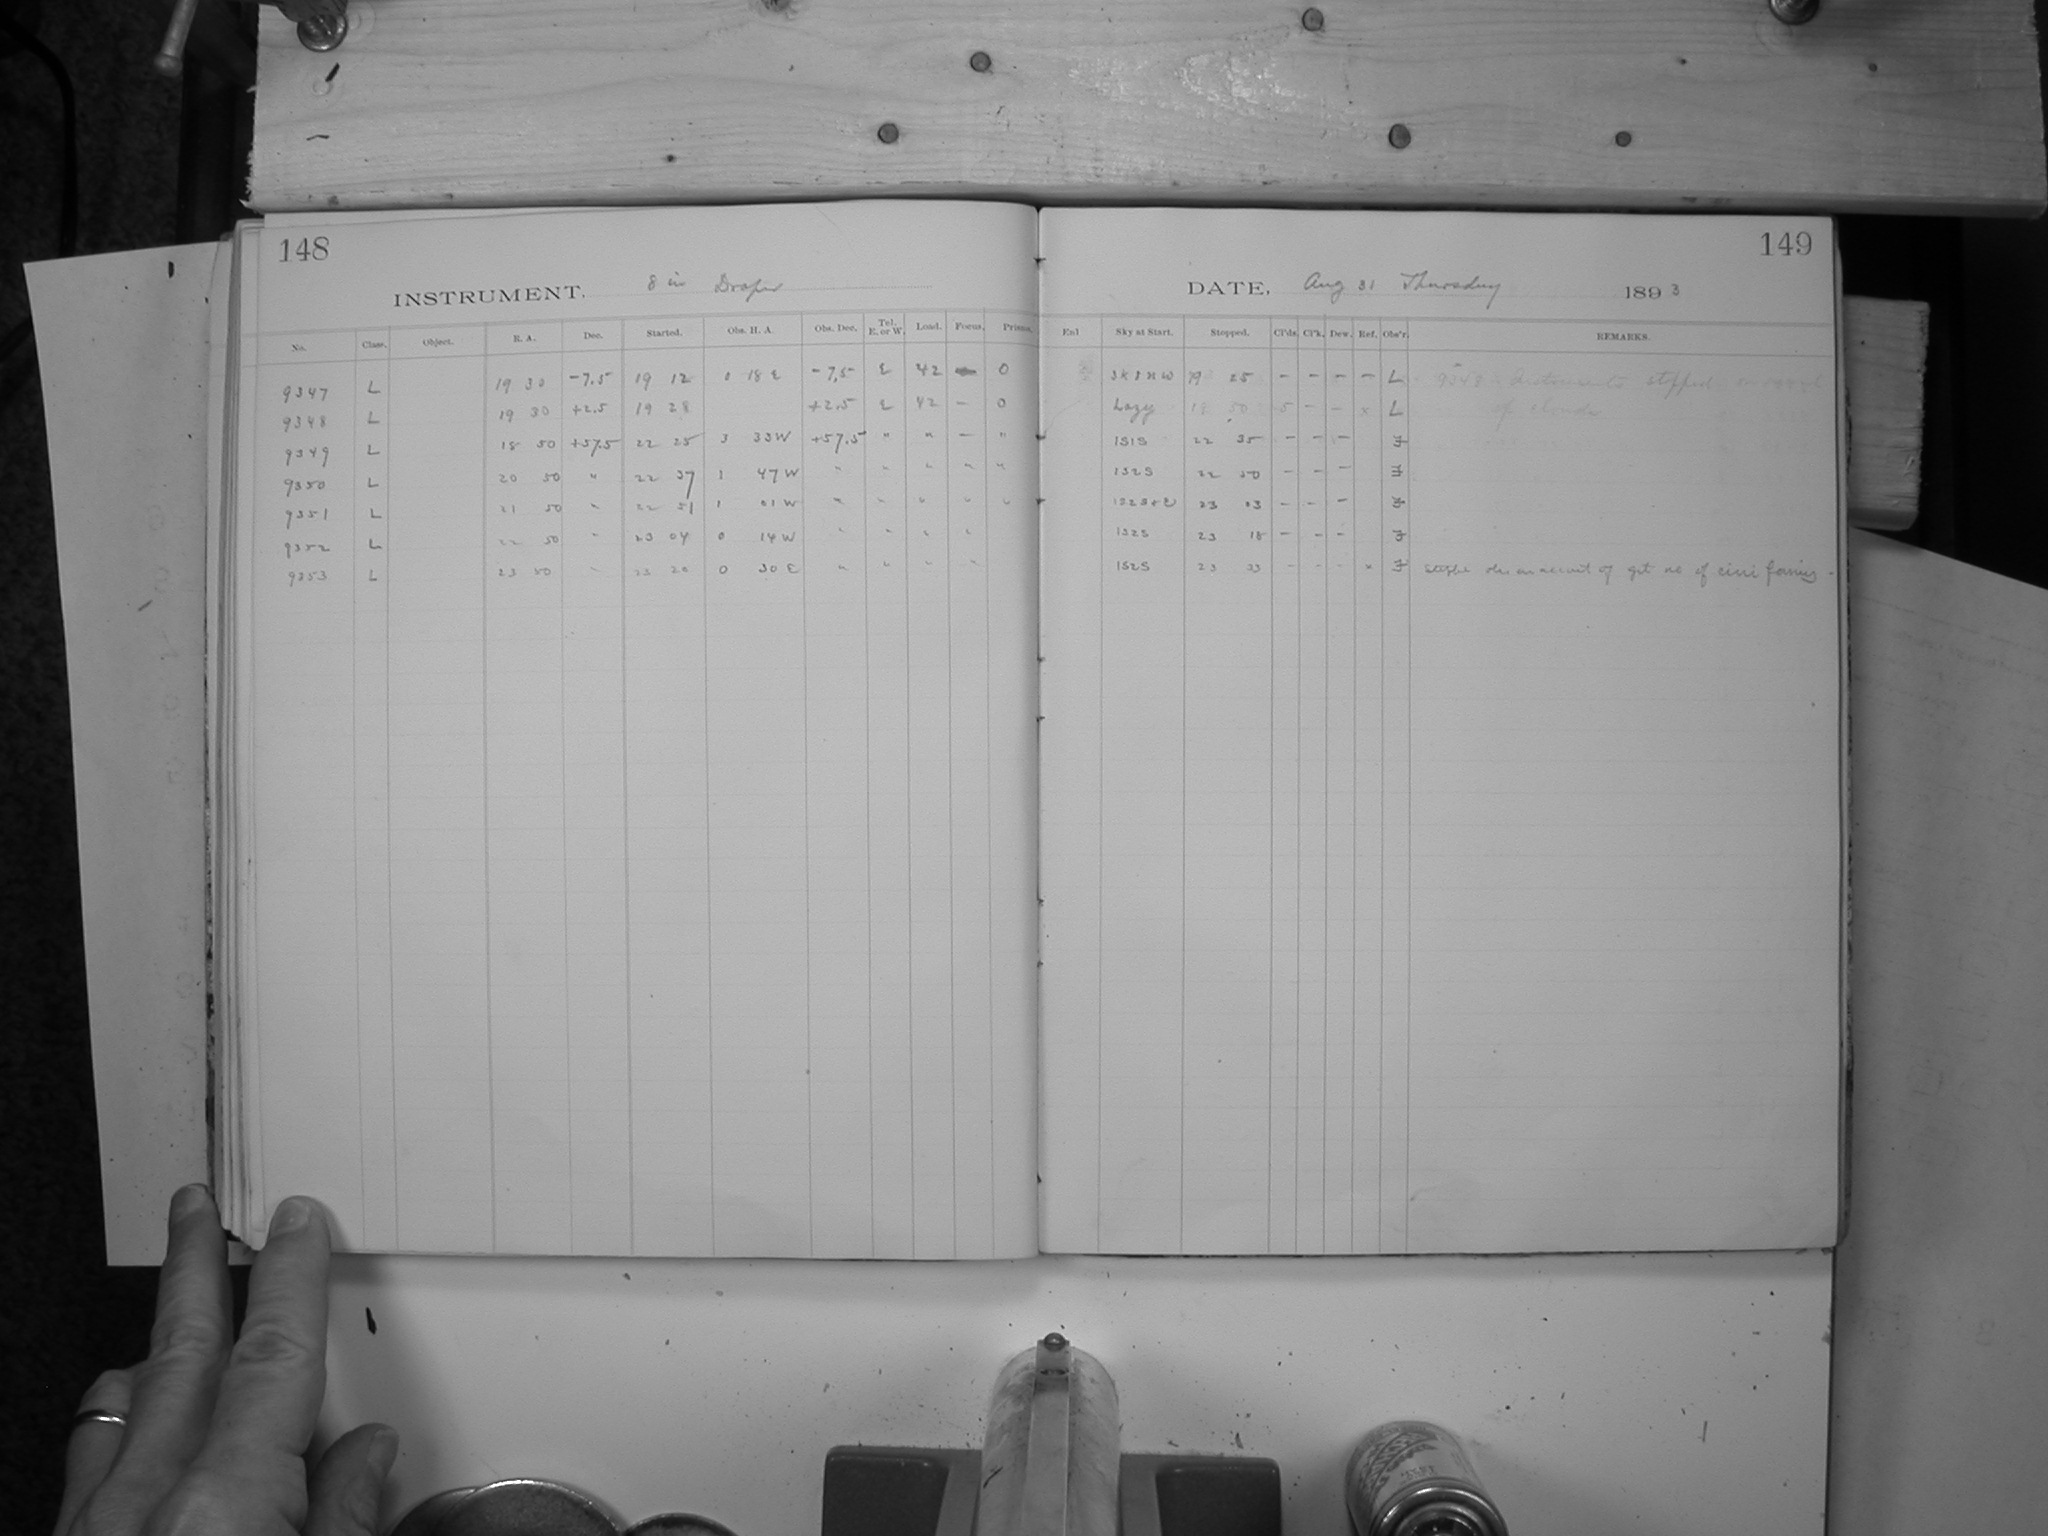 148
149
INSTRUMENT. 8 in Draper
DATE, Aug 31 Thursday 1893
No. Class. Object. R. A. Dec. Started. Obs. H. A. Obs. Dec. Tel. E. or W. Load. Focus. Prisms. Enl Sky at Start. Stopped. Cl'ds. Cl'k. Dew. Ref. Obs'r. REMARKS.
9347 L 19 30 -7.5 19 12 0 18 E -7.5 E 42 - 0 19 25 - - - - L 9348 Instruments stopped on account
9348 L 19 30 +2.5 19 28 +2.5 E 42 - 0 Hazy 5 - - x L of clouds
9349 L 18 50 +57.5 22 25 3 33 W +57.5 " " - " 1S1S 22 35 - - - F
9350 L 20 50 " 22 37 1 47 W " " " " " 1S2S 22 50 - - - F
9351 L 21 50 " 22 51 1 01 W " " " " " 23 03 - - - F
9352 L 22 50 " 23 04 0 14 W " " " " 1S2S 23 18 - - - F
9353 L 23 50 " 23 20 0 30 E " " " " 1S2S 23 33 - - - x F on account of of cirri forming -